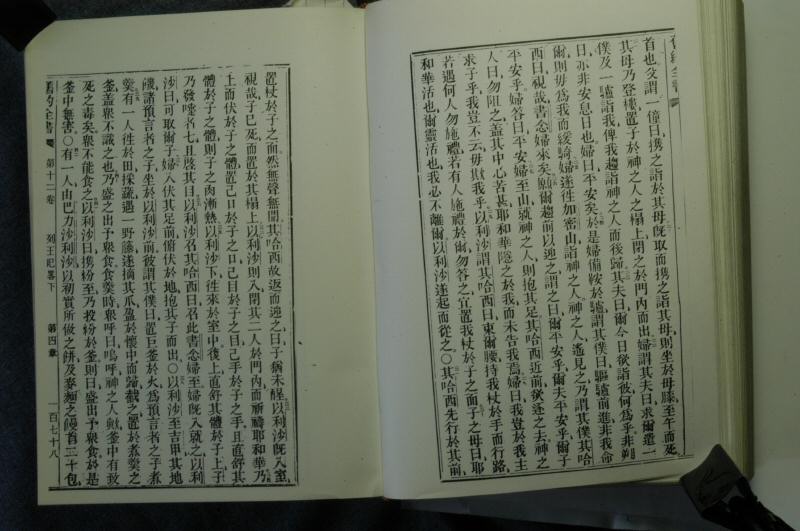 首也父謂一僮曰携之詣於其母旣取而携之詣其母則坐於母膝至午而死
其母乃登樓置子於神之人之榻上閉之於門內而出婦謂其夫曰求爾遣一
僕及一驢詣我俾我趨詣神之人而後歸其夫曰爾今日欲詣彼何爲乎非
日亦非安息日也婦曰平安矣於是婦備鞍於驢謂其僕曰驅驢前進非我命
爾則毋爲我而緩騎婦遂徃加密山詣神之人神之人遙見之乃謂其僕其哈
西曰視哉書念婦來矣願爾趨前以迎之謂之曰爾平安乎爾夫平安乎爾子
平安乎婦答曰平安婦至山就神之人則抱其足其哈西近前欲逐之去神之
人曰勿阻之蓋其中心若甚耶和華隱之於我而未告我焉婦曰我豈於我主
求子乎我豈不云毋欺我乎以利沙謂其哈西曰束爾腰持我杖於手而行路
若遇何人勿施禮若有人施禮於爾勿答之宜置我杖於子之面子之母曰耶
和華活也爾靈活也我必不離爾以利沙遂起而從之○其哈西先行於其前
置杖於子之面然無聲無聞其哈西故返而迎之曰子猶未醒以利沙旣入室
視哉子已死而置於其榻上以利沙則入閉其二人於門內而祈禱耶和華乃
上而伏於子之體置己口於子之口己目於子之目己手於子之手且直舒其
體於子之體則子之肉漸熱以利沙下徃來於室中後上直舒其體於子上子
乃發嚏者七且啓其目以利沙召其哈西曰召此書念婦至婦旣入就之以利
沙曰可取爾子婦入伏其足前俯伏於地抱其子而出○以利沙至吉甲其地
饑諸預言者之子坐於以利沙前彼謂其僕曰置巨釜於火爲預言者之子煮
羹有一人徃於田採蔬遇一野藤遂摘其瓜盈於懷中而歸截之置於煮羹之
釜蓋衆不識之也乃盛之出予衆食食羹時衆呼曰嗚呼神之人歟釜中有致
死之毒矣衆不能食之以利沙曰携粉至乃投粉於釜則曰盛出予衆食於是
釜中無害○有一人由巴力沙利沙以初實所做之餅及麥麵之饅首二十包
舊約全書 第十二卷 列王紀畧下 第四章 一百七十八